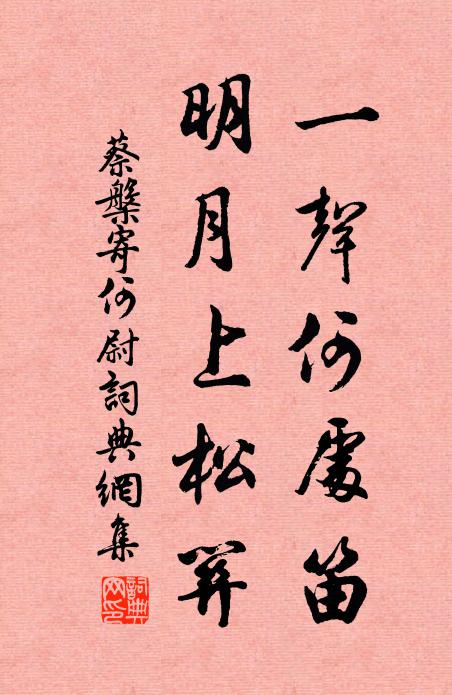 一聲何處笛
明月上松關
蔡槃寄何尉詞典網集
詞典网印